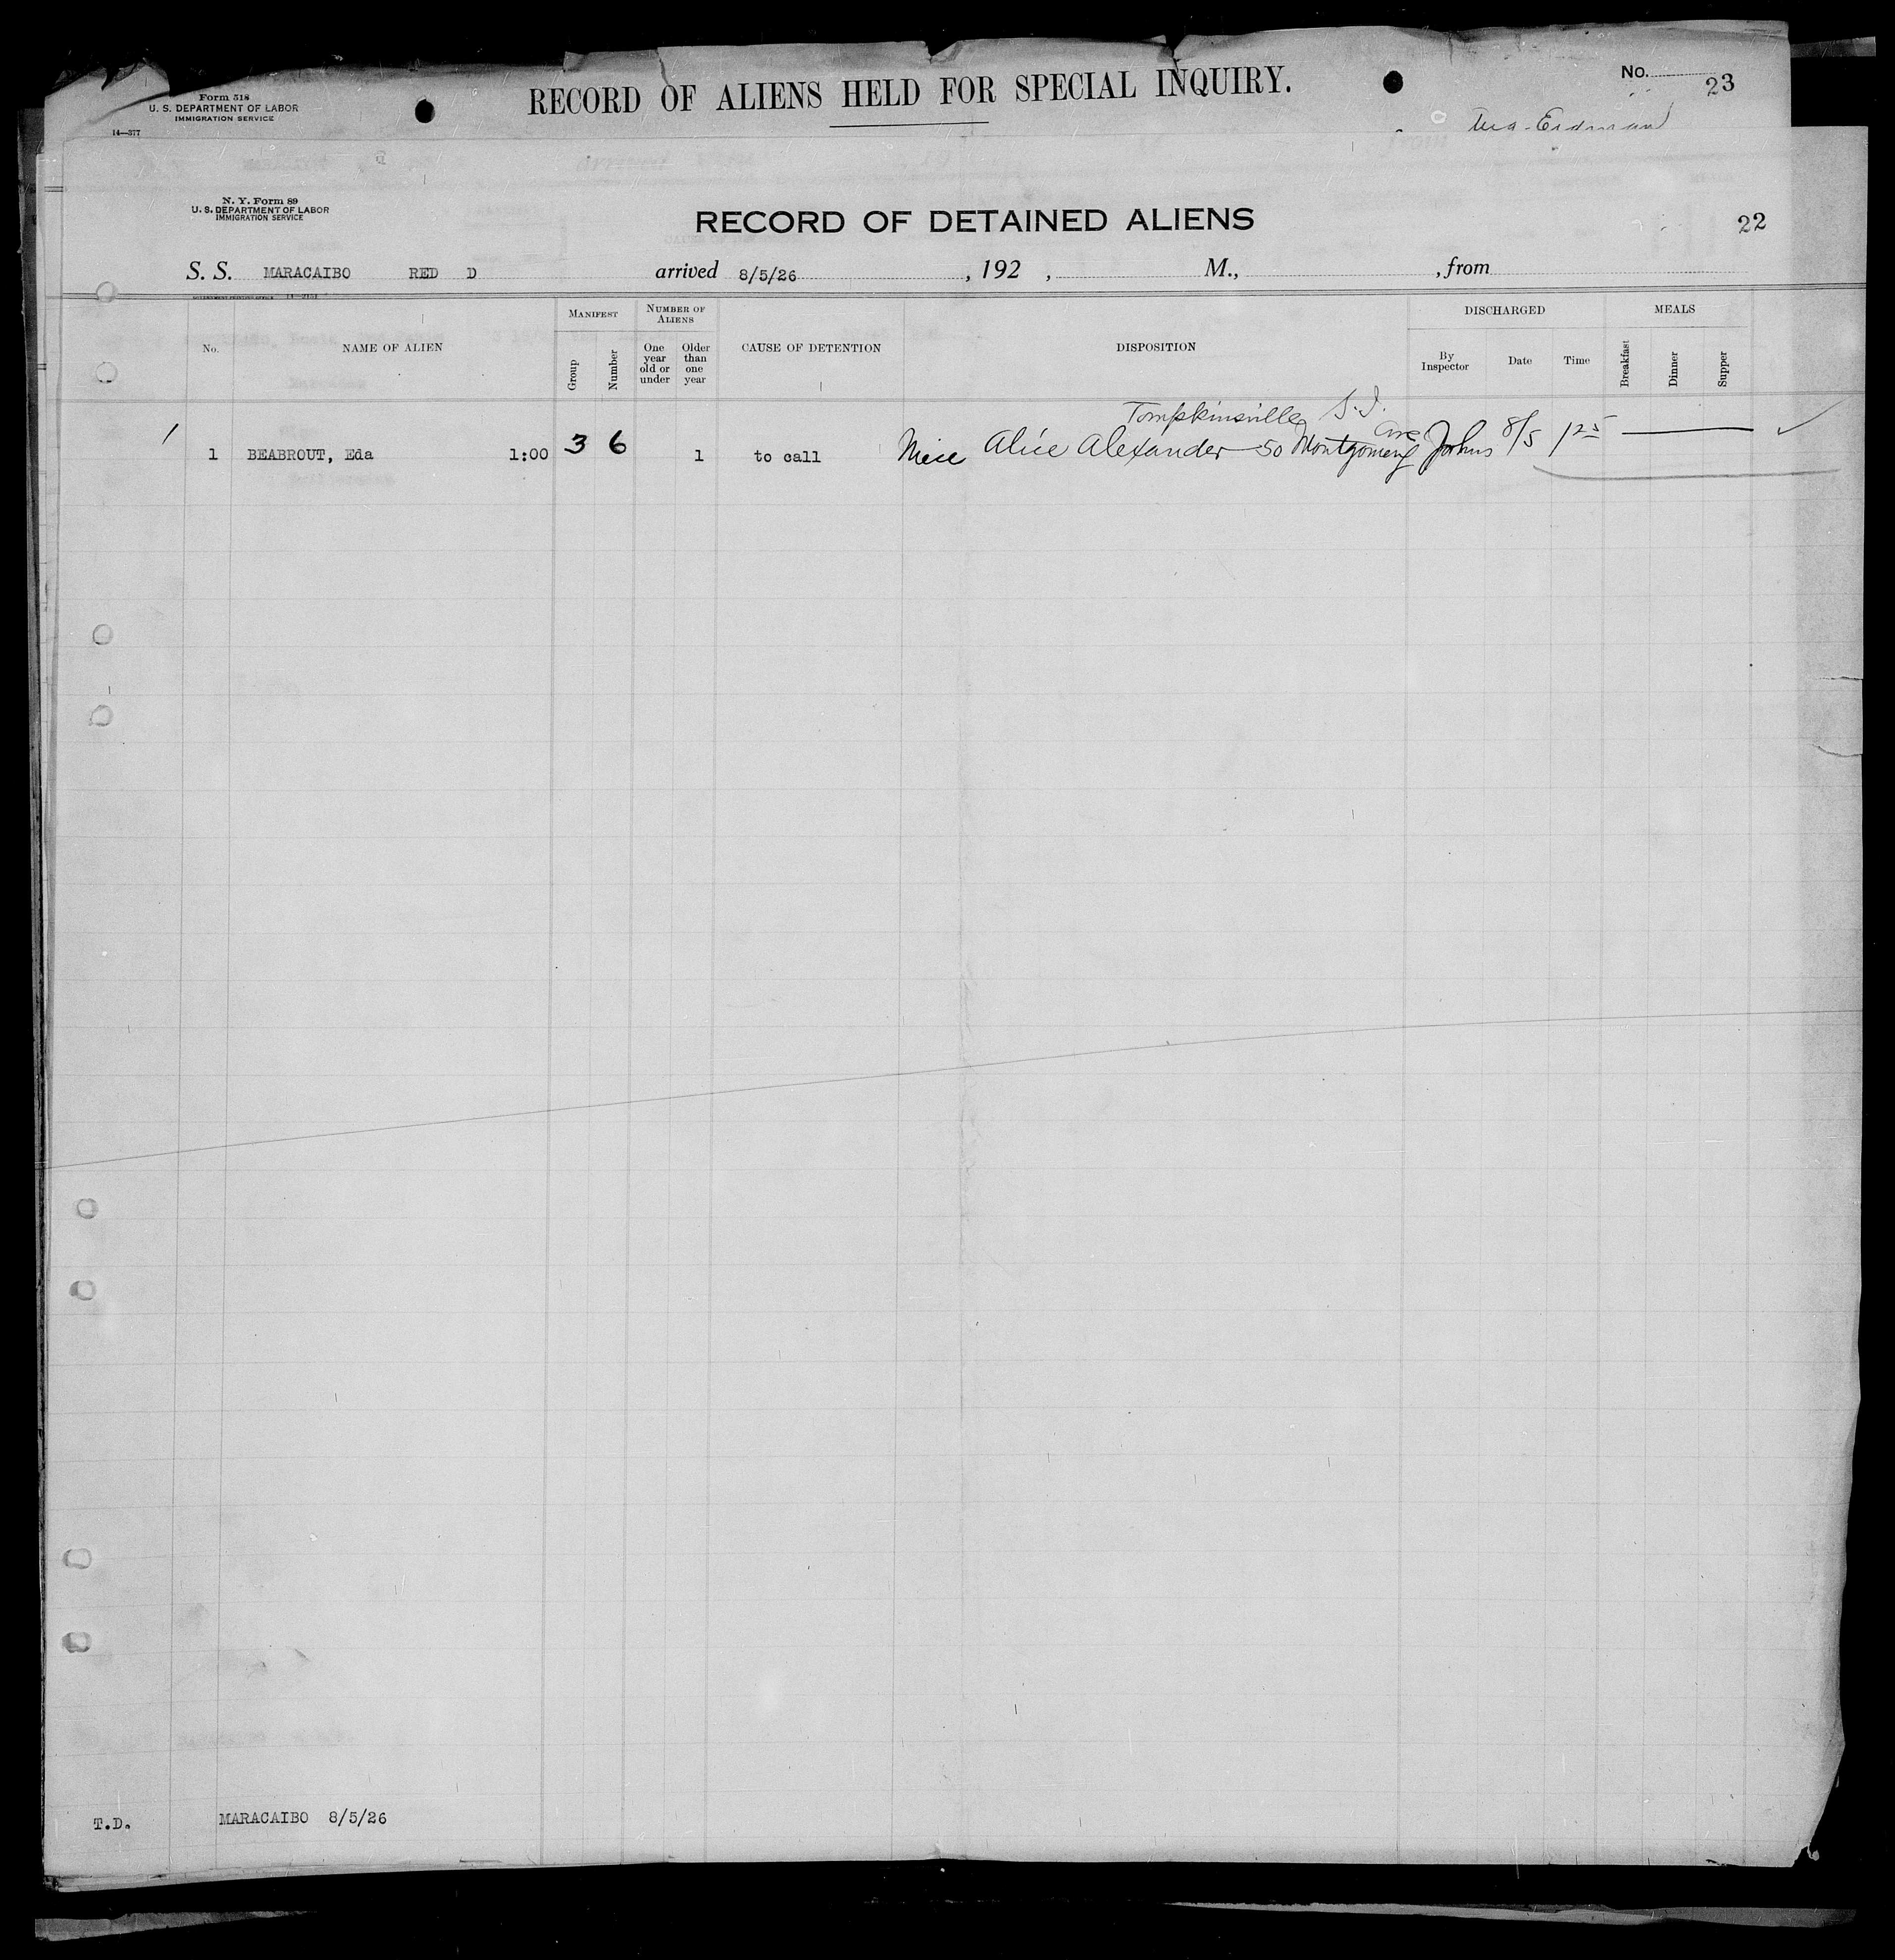 Form 518
U. S. DEPARTMENT OF LABOR
IMMIGRATION SERVICE
14—377
RECORD OF ALIENS HELD FOR SPECIAL INQUIRY.
No. 23
Erdman
N. Y. Form 89
U. S. DEPARTMENT OF LABOR
IMMIGRATION SERVICE
RECORD OF DETAINED ALIENS
22
S. S. MARACAIBO RED D arrived 8/5/26, 192 , M., , from
GOVERNMENT PRINTING OFFICE 14—2151
No.
NAME OF ALIEN
MANIFEST
Group
Number
NUMBER OF ALIENS
One year old or under
Older than one year
CAUSE OF DETENTION
DISPOSITION
DISCHARGED
By Inspector
Date
Time
MEALS
Breakfast
Dinner
Supper
Tompkinsville S.I.
/ 1 BEABROUT, Eda 1:00 3 6 1 to call Niece Alice Alexander — 50 Montgomery Ave 8/5 1 25 ✓
T.D. MARACAIBO 8/5/26